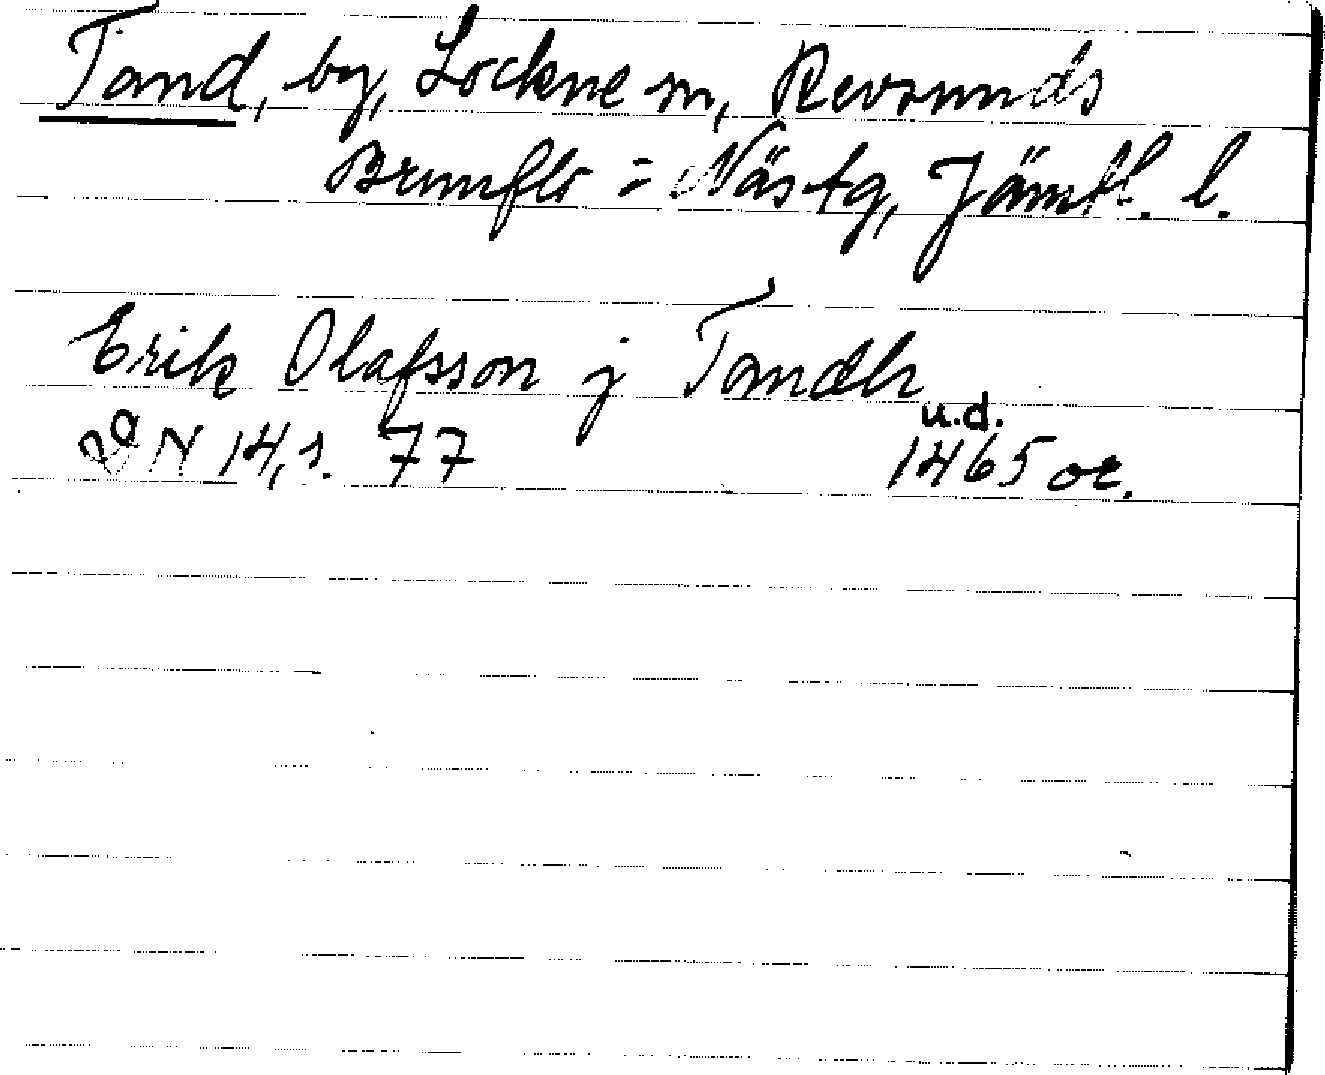 Tand, by, Lockne sn, Revsunds
Brunflo = Näs tg, Jämtl. l.
Erik Olafsson j Tandh
u.d.
DN 14, s. 77 1465 or.